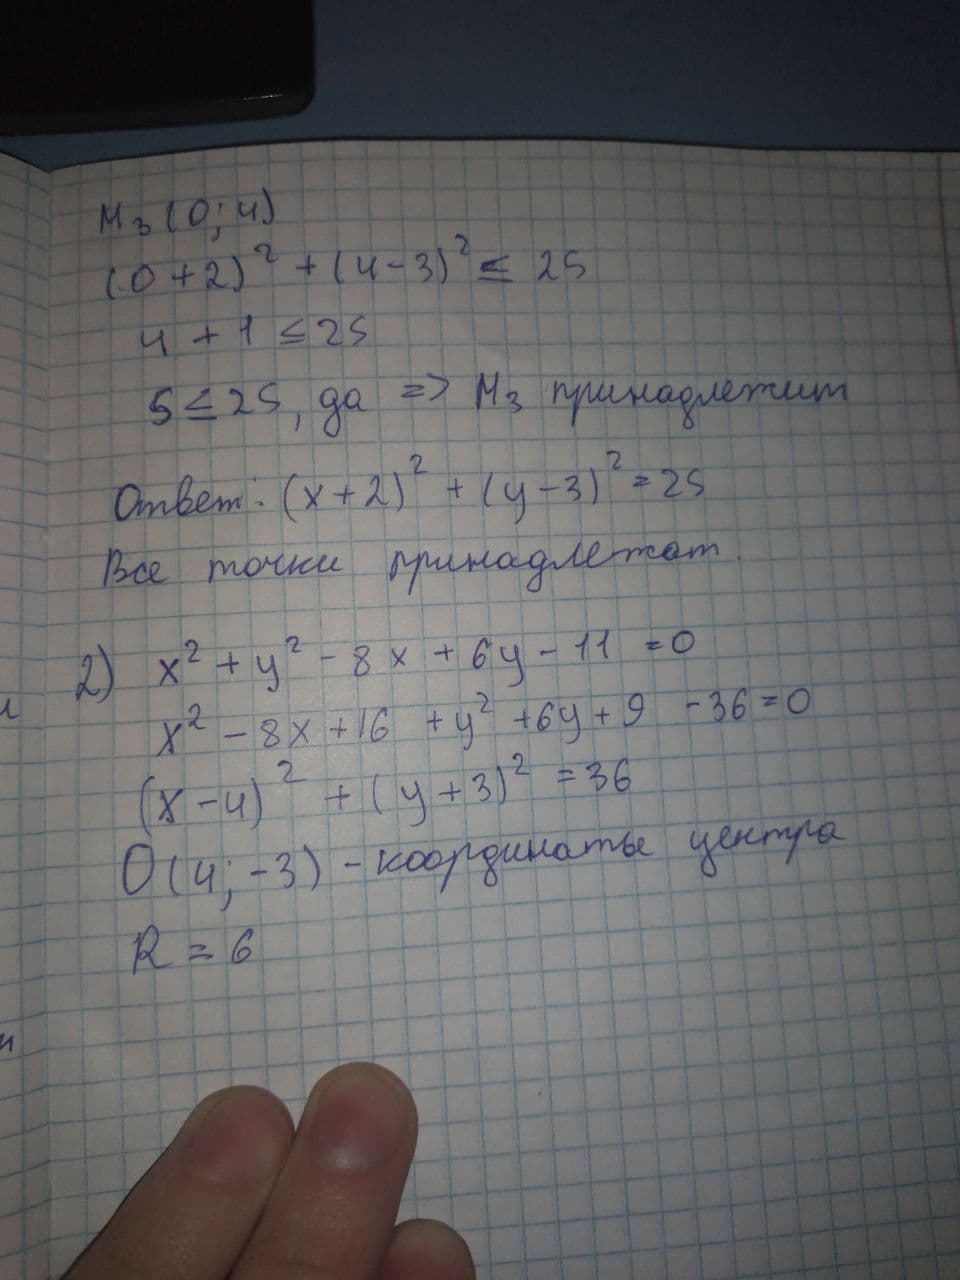 M₃(0; 4)
(0+2)² + (4-3)² ≤ 25
4 + 1 ≤ 25
5 ≤ 25, да => M₃ принадлежит
Ответ: (x+2)² + (y-3)² = 25
Все точки принадлежат
2) x² + y² - 8x + 6y - 11 = 0
x² - 8x + 16 + y² + 6y + 9 - 36 = 0
(x-4)² + (y+3)² = 36
O(4; -3) - координаты центра
R = 6